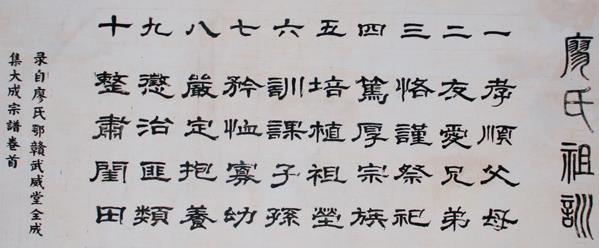 廖氏祖訓
一 孝順父母
二 友愛兄弟
三 恪謹祭祀
四 篤厚宗族
五 培植祖塋
六 訓課子孫
七 矜恤寡幼
八 嚴定抱養
九 懲治匪類
十 整肅閨田
录自廖氏鄂贛武威堂全成
集大成宗譜卷首